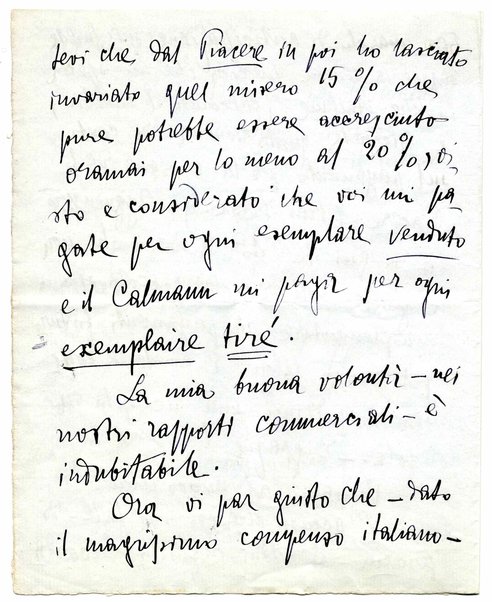 tevi che dal Piacere in poi ho lasciato
invariato quel misero 15% che
pure potrebbe essere accresciuto
oramai per lo meno al 20%, vi-
sto e considerato che voi mi pa-
gate per ogni esemplare venduto
e il Calmann mi paga per ogni
exemplaire tiré.
La mia buona volontà – nei
nostri rapporti commerciali – è
indubitabile.
Ora vi par giusto che – dato
il magrissimo compenso italiano –